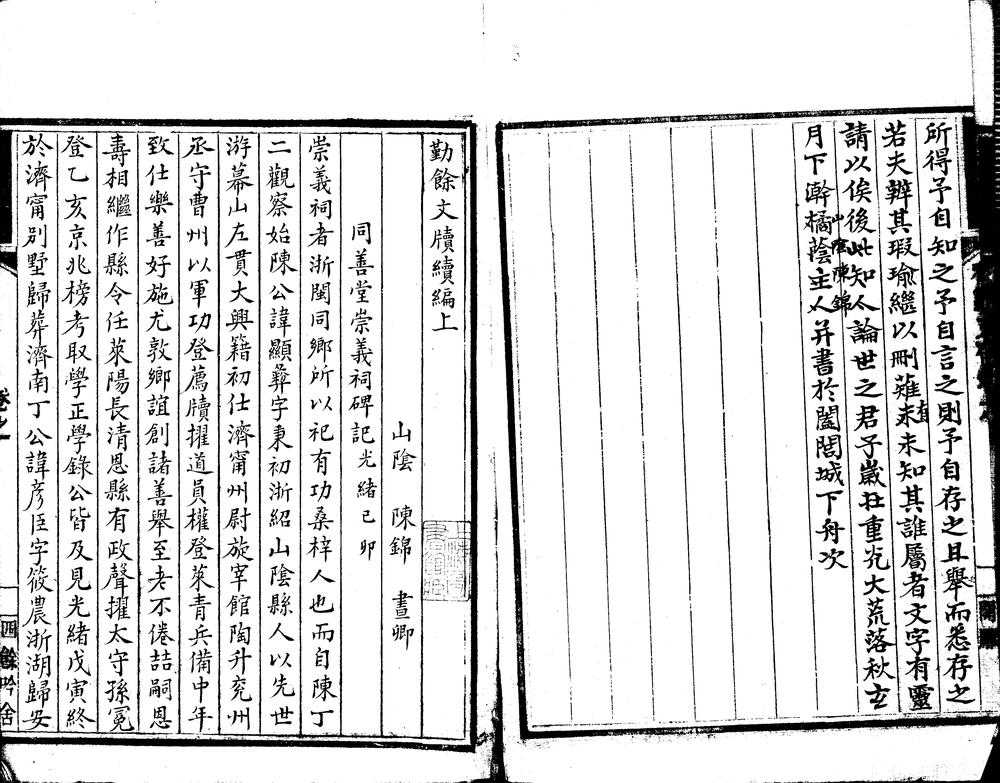 所得予自知之予自言之則予自存之且舉而悉存之
若夫辨其瑕瑜繼以刪薙來者未知其誰屬者文字有靈
請以俟後此知人論世之君子歲在重光大荒落秋玄
月下澣橘蔭主人山陰陳錦并書於闔閭城下舟次
勤餘文牘續編上
山陰 陳錦 晝卿
同善堂崇義祠碑記光緒己卯
崇義祠者浙閩同鄉所以祀有功桑梓人也而自陳丁
二觀察始陳公諱顯彝字秉初浙紹山陰縣人以先世
游幕山左貫大興籍初仕濟甯州尉旋宰館陶升兖州
丞守曹州以軍功登薦牘擢道員權登萊青兵備中年
致仕樂善好施尤敦鄉誼創諸善舉至老不倦喆嗣恩
壽相繼作縣令任萊陽長清恩縣有政聲擢太守孫冕
登乙亥京兆榜考取學正學錄公皆及見光緒戊寅終
於濟甯別墅歸葬濟南丁公諱彥臣字筱農浙湖歸安
卷之一
吟舍